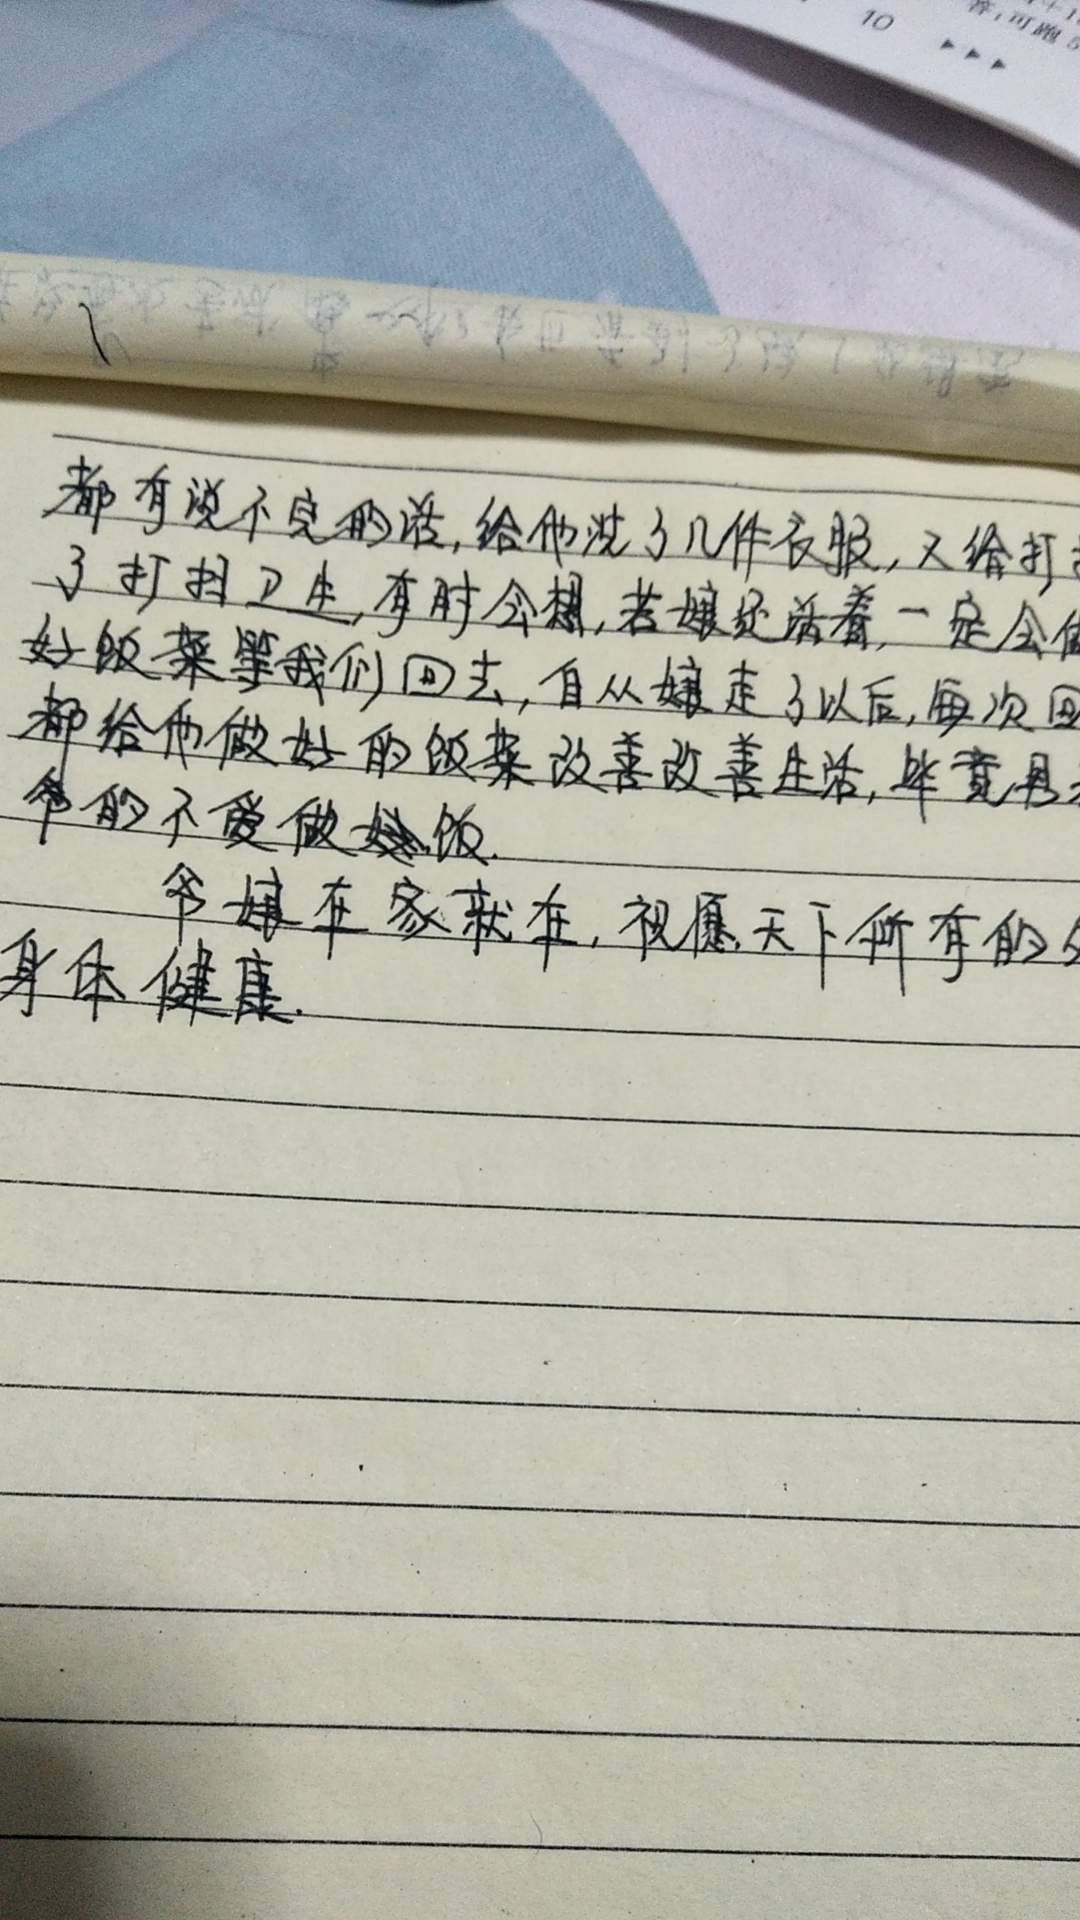 10
▶▶▶
答,可跑5
都有说不完的话,给他洗了几件衣服,又给打
了打扫卫生,有时会想,若娘还活着,一定会做
好饭菜等我们回去,自从娘走了以后,每次回
都给他做好的饭菜改善改善生活,毕竟
爷的不爱做饭.
爷娘在家就在,祝愿天下所有的
身体健康.